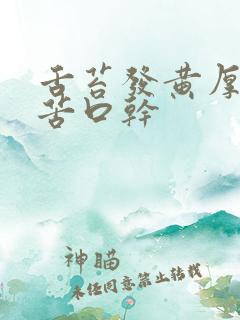 舌苔發黃厚
苦口幹
神瞄
未经同意禁止转载